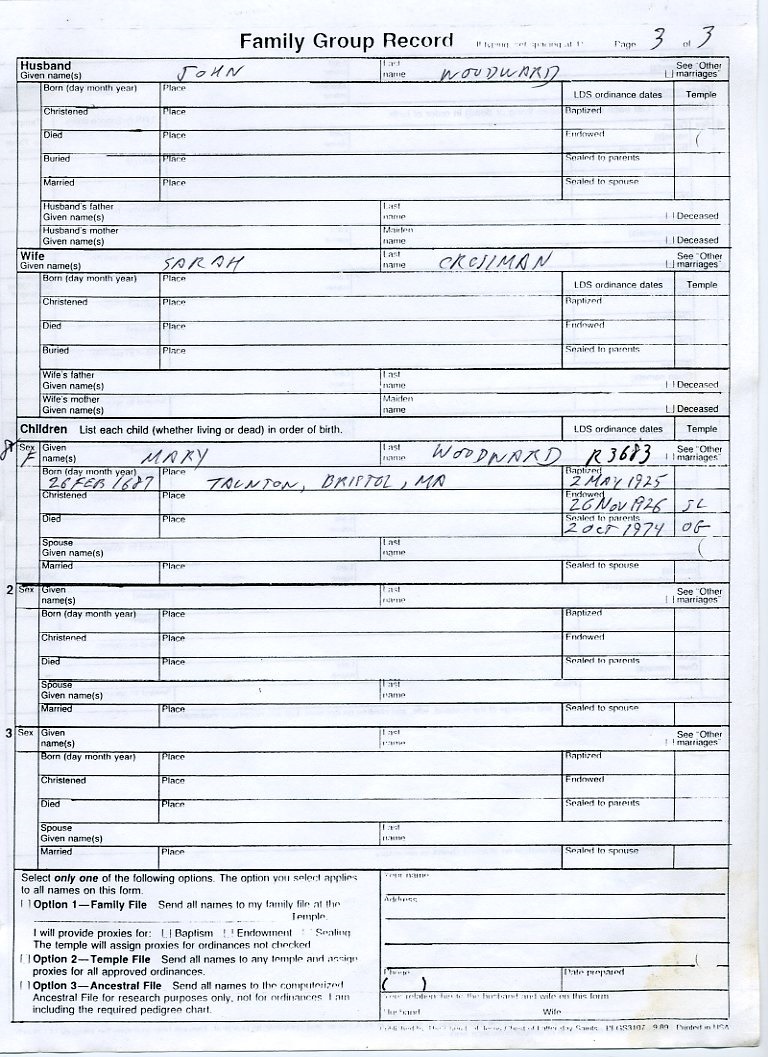 Family Group Record Page 3 of 3
Husband
Given name(s) JOHN Last name WOODWARD See "Other marriages"
Born (day month year) Place LDS ordinance dates Temple
Christened Place Baptized
Died Place Endowed
Buried Place Sealed to parents
Married Place Sealed to spouse
Husband's father
Given name(s) Last name Deceased
Husband's mother
Given name(s) Maiden name Deceased
Wife
Given name(s) SARAH Last name CROSSMAN See "Other marriages"
Born (day month year) Place LDS ordinance dates Temple
Christened Place Baptized
Died Place Endowed
Buried Place Sealed to parents
Wife's father
Given name(s) Last name Deceased
Wife's mother
Given name(s) Maiden name Deceased
Children List each child (whether living or dead) in order of birth. LDS ordinance dates Temple
Sex F Given name(s) MARY Last name WOODWARD R3683 See "Other marriages"
Born (day month year) 26 FEB 1687 Place TAUNTON, BRISTOL, MA Baptized 2 MAY 1925
Christened Place Endowed 26 NOV 1926 SL
Died Place Sealed to parents 2 OCT 1974 OG
Spouse
Given name(s) Last name
Married Place Sealed to spouse
2 Sex Given name(s) Last name See "Other marriages"
Born (day month year) Place Baptized
Christened Place Endowed
Died Place Sealed to parents
Spouse
Given name(s) Last name
Married Place Sealed to spouse
3 Sex Given name(s) Last name See "Other marriages"
Born (day month year) Place Baptized
Christened Place Endowed
Died Place Sealed to parents
Spouse
Given name(s) Last name
Married Place Sealed to spouse
Select only one of the following options. The option you select applies
to all names on this form.
Option 1—Family File Send all names to my family file at the
Temple.
I will provide proxies for: Baptism Endowment Sealing
The temple will assign proxies for ordinances not checked
Option 2—Temple File Send all names to any temple and assign
proxies for all approved ordinances.
Option 3—Ancestral File Send all names to the computerized
Ancestral File for research purposes only, not for ordinances. I am
including the required pedigree chart.
Your name
Address
Phone Date prepared
( )
Your relationship to the husband and wife on this form
Husband Wife
9/89 Printed in USA